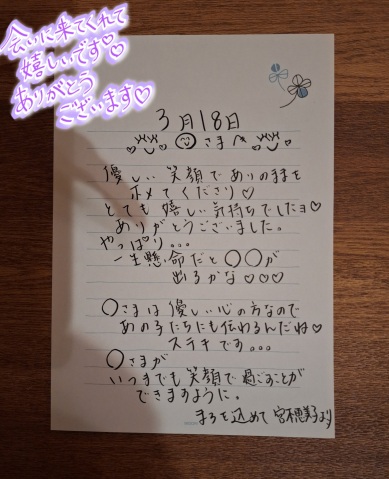 会いに来てくれて
嬉しいです♡
ありがとう
ございます♡
3月18日
○さまへ
優しい笑顔でありのままを
ホメてくださり♡
とても嬉しい気持ちでしたヨ♡
ありがとうございました。
やっぱり...
一生懸命だと○○が
出るかな♡♡♡
○さまは優しい心の方なので
あの子たちにも伝わるんだね♡
ステキです。。。
○さまが
いつまでも笑顔で過ごすことが
できますように。
まろを込めて 宮穂美子より